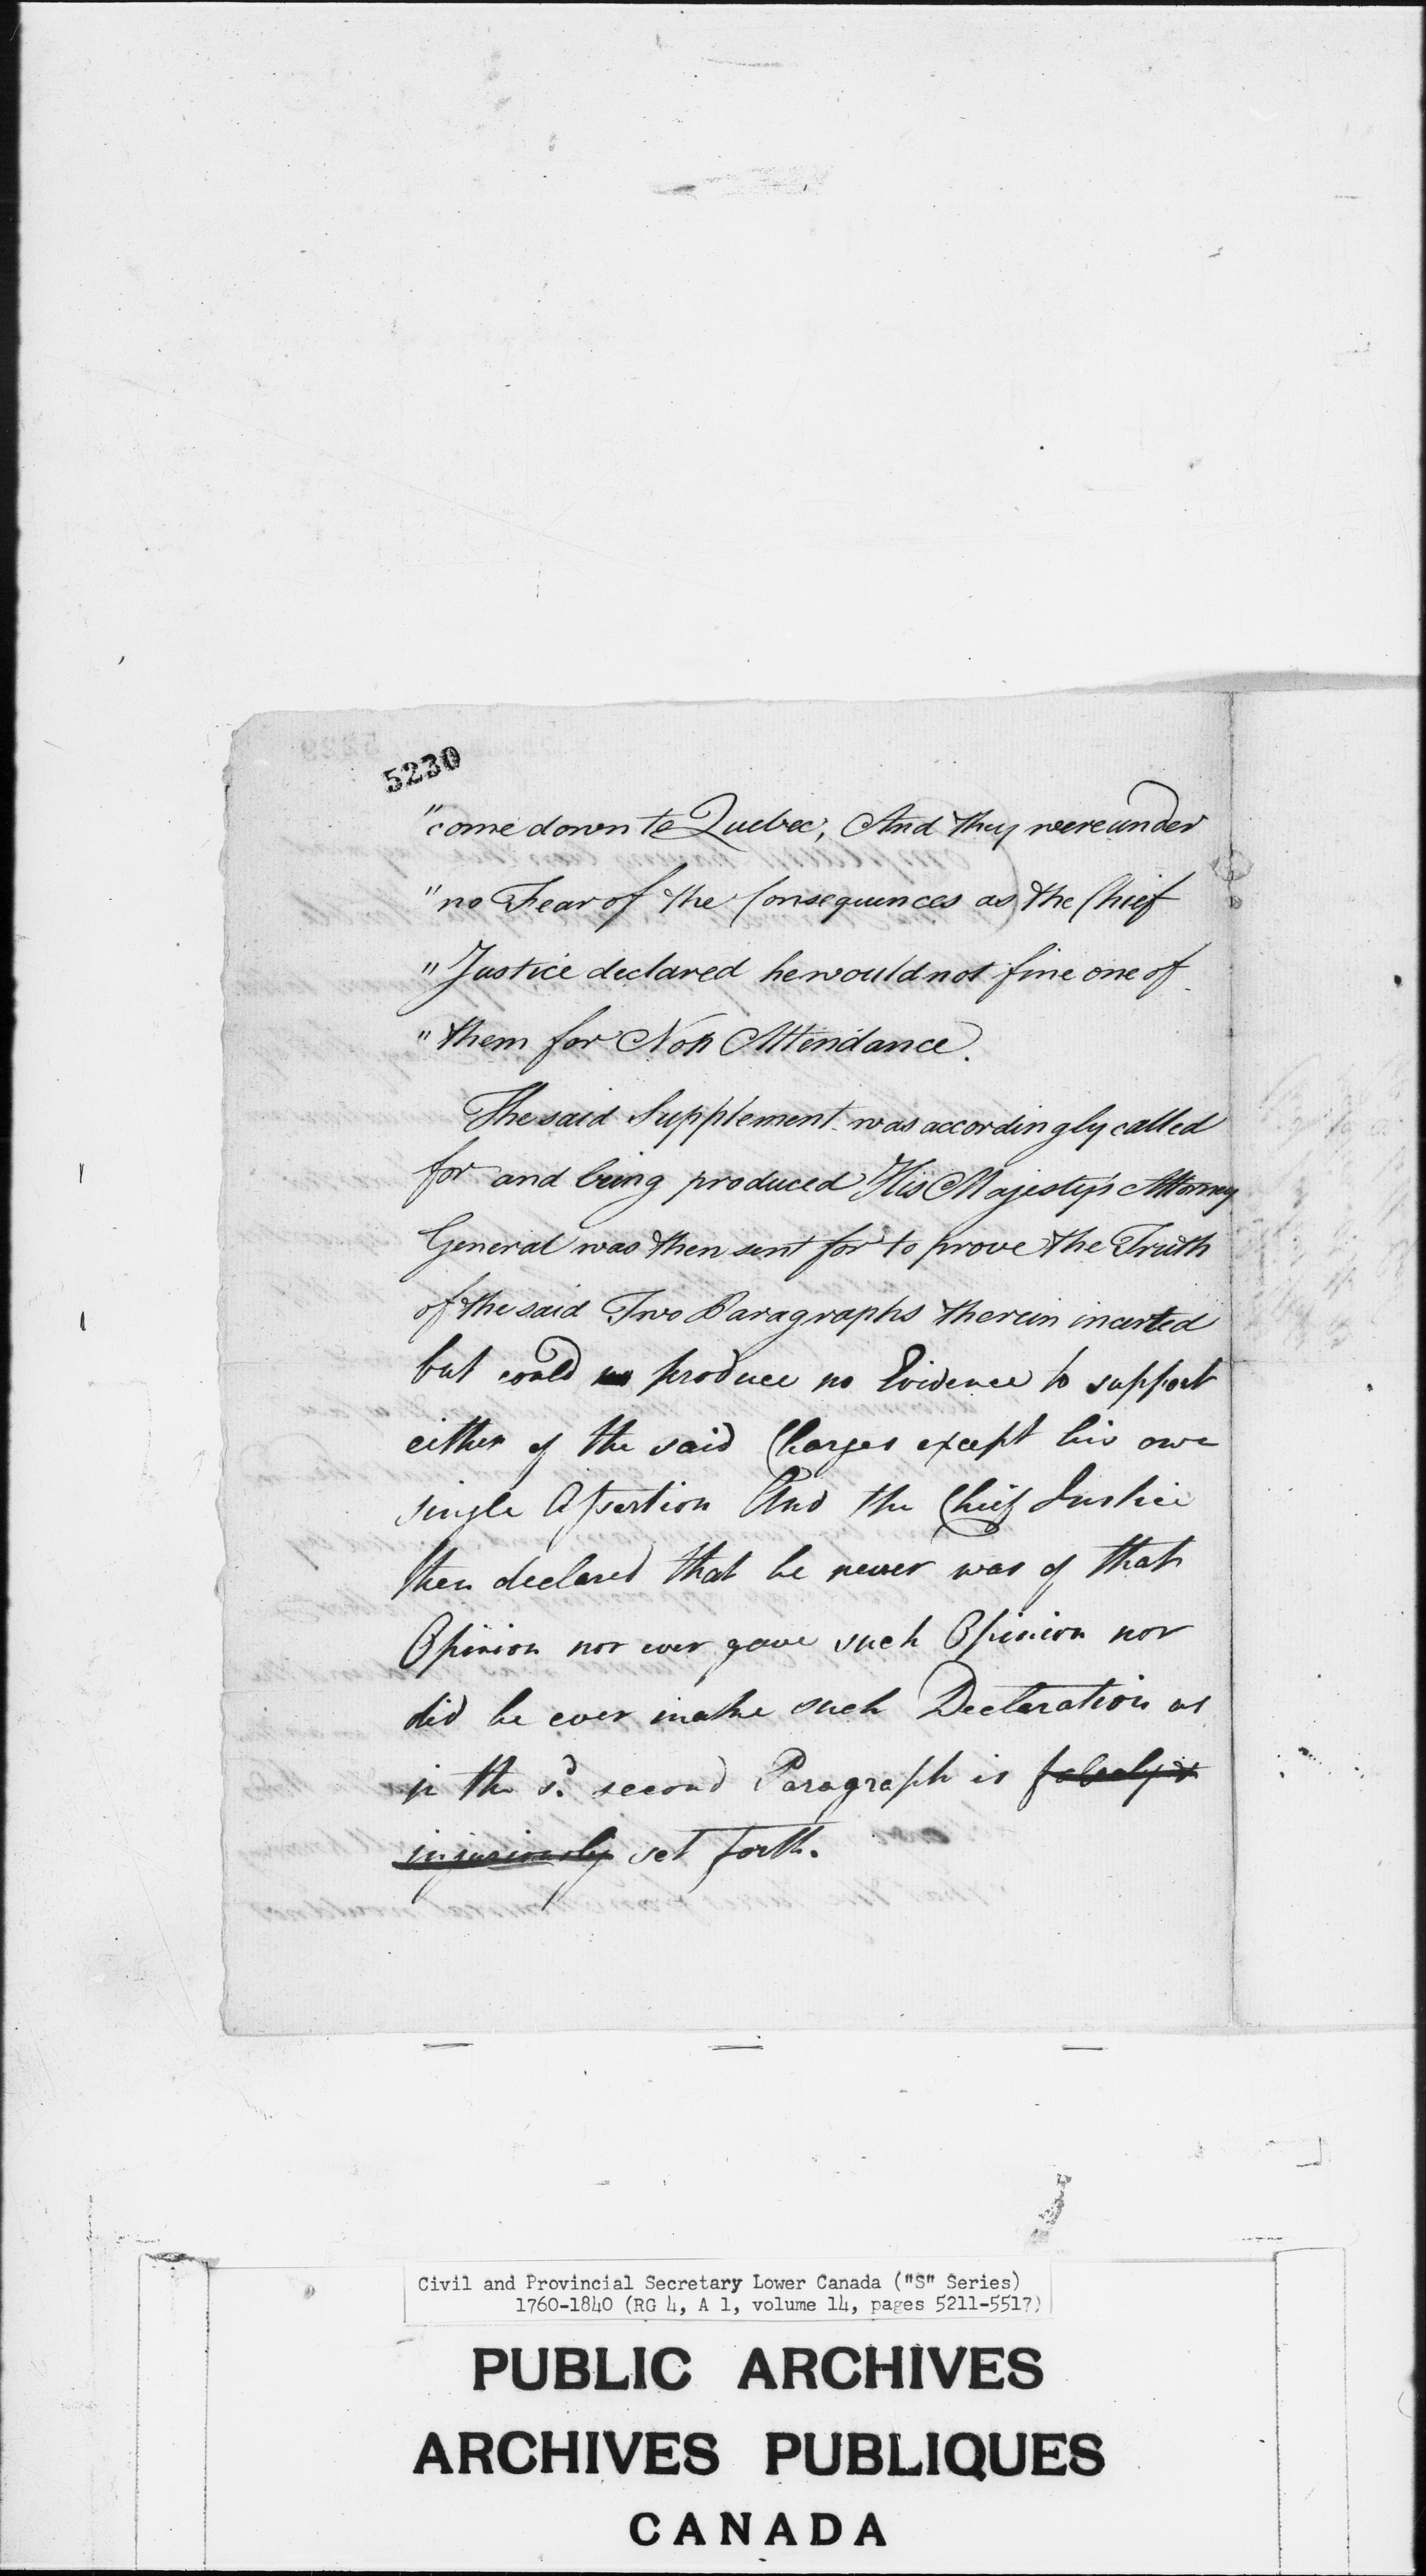 5230
"come down to Quebec, And they were under
"no Fear of the Consequences as the Chief
"Justice declared he would not fine one of
"them for Non Attendance.
The said Supplement was accordingly called
for and being produced His Majesty's Attorney
General was then sent for to prove the Truth
of the said Two Paragraphs therein incerted
but could no produce no Evidence to support
either of the said Charges except his own
single Assertion And the Chief Justice
then declared that he never was of that
Opinion nor ever gave such Opinion nor
did he ever make such Declaration as
in the sd. second Paragraph is falsely &
injuriously set forth.
Civil and Provincial Secretary Lower Canada ("S" Series)
1760-1840 (RG 4, A 1, volume 14, pages 5211-5517)
PUBLIC ARCHIVES
ARCHIVES PUBLIQUES
CANADA